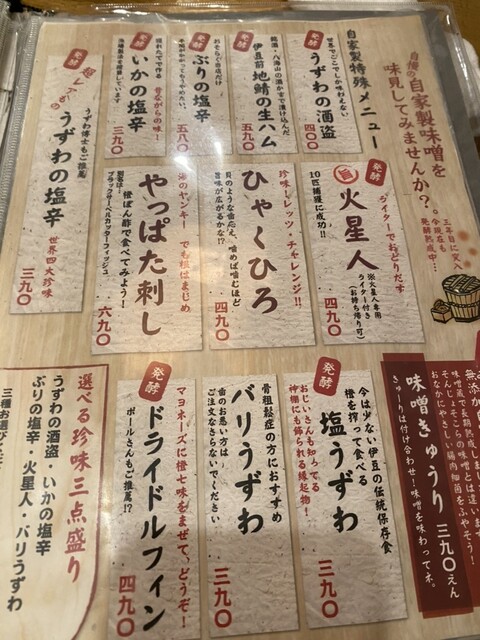 自慢の自家製味噌を
味見してみませんか？。
三年目に突入
今現在も
発酵熟成中…
自家製特殊メニュー
発酵
世界でここでしか味わえない
うずわの酒盗
四九〇
発酵
銘酒・八海山の酒かすで漬け込んだ
伊豆前地鯖の生ハム
五九〇
発酵
おそらく当店だけ
ぶりの塩辛
五八〇
発酵
獲れたてで作る 昔ながらの味！
漁場製法を踏襲しています
いかの塩辛
三九〇
発酵
超レアもの
うずわ博士もご推薦
うずわの塩辛
世界四大珍味
三九〇
発酵
ライターでおどりだす
旨
火星人
※火星人専用
ライター付き
(お持ち帰り可)
10匹捕獲に成功!!
四九〇
珍味レッツ・チャレンジ!!
ひゃくひろ
貝のような歯応え、噛めば噛むほど
旨味が広がるかな!?
四九〇
海のヤンキー でも根はまじめ
やっぱた刺し
橙ぽん酢で食べてみよう！
別名は…
ブラックサーベルカッターフィッシュ
六九〇
味噌蔵で長期熟成しました
そんじょそこらの味噌とは違います
おなかにやさしい、腸内細菌をふやそう！
味噌きゅうり 三九〇えん
きゅーりは付け合わせ！味噌を味わってネ。
発酵
今は少ない伊豆の伝統保存食
橙を搾って食べる
塩うずわ
おじいさんも知ってる
神棚にも飾られる縁起物！
三九〇
骨粗鬆症の方におすすめ
バリうずわ
歯のお悪い方は
ご注文なさらないでください
三九〇
発酵
マヨネーズに橙七味をまぜて、どうぞ！
ドライドルフィン
ポールさんもご推薦!?
四九〇
選べる珍味三点盛り
うずわの酒盗・いかの塩辛
ぶりの塩辛・火星人・バリうずわ
三種お選び